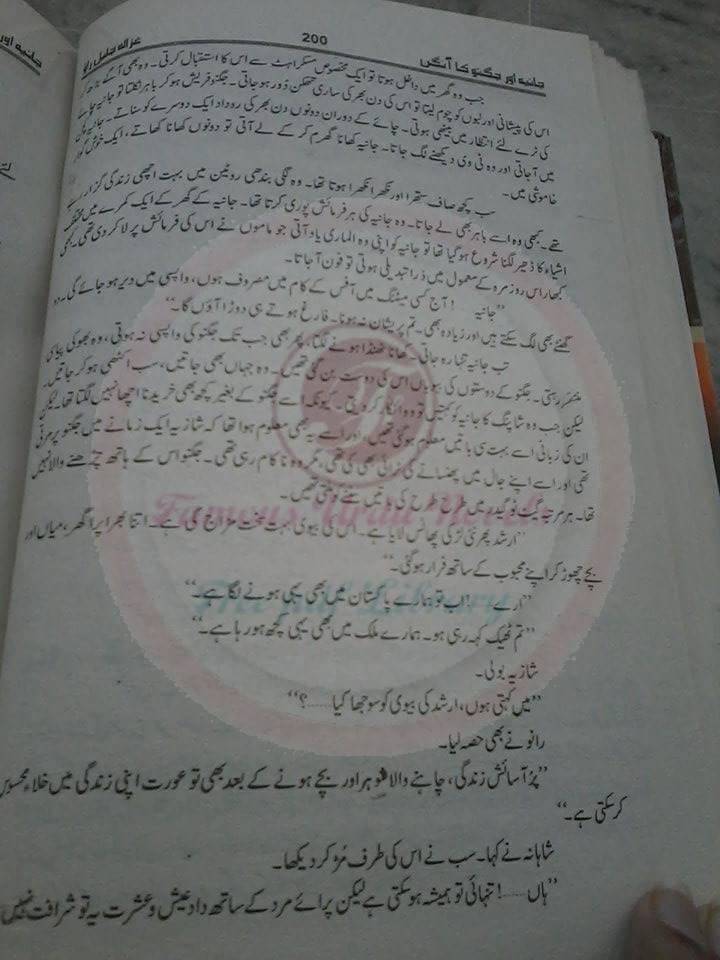 جانیہ اور
جانیہ اور جگنو کا آنگن
200
غزالہ جلیل راؤ
جب وہ گھر میں داخل ہوتا تو ایک مخصوص مسکراہٹ سے اس کا استقبال کرتی۔ وہ بھی آگے بڑھ کر
اس کی پیشانی اور لبوں کو چوم لیتا تو اس کی دن بھر کی ساری تھکن دُور ہو جاتی۔ جگنو فریش ہو کر باہر نکلتا تو جانیہ چائے
کی ٹرے لئے انتظار میں بیٹھی ہوتی۔ چائے کے دوران دونوں دن بھر کی روداد ایک دوسرے کو سناتے۔ جانیہ
میں آ جاتی اور وہ ٹی وی دیکھنے لگ جاتا۔ جانیہ کھانا گرم کر کے لے آتی تو دونوں کھانا کھاتے، ایک خوش گوار
خاموشی میں۔
سب کچھ صاف ستھرا اور نکھرا نکھرا ہوتا تھا۔ وہ لگی بندھی روٹین میں بہت اچھی زندگی گزار رہے
تھے۔ کبھی وہ اسے باہر بھی لے جاتا۔ وہ جانیہ کی ہر فرمائش پوری کرتا تھا۔ جانیہ کے گھر کے ایک کمرے میں مختلف
اشیاء کا ڈھیر لگنا شروع ہو گیا تھا تو جانیہ کو اپنی وہ الماری یاد آتی جو ماموں نے اس کی فرمائش پر لا کر دی تھی۔ کبھی
کبھار اس روزمرہ کے معمول میں ذرا تبدیلی ہوتی تو فون آ جاتا۔
”جانیہ......! آج کسی میٹنگ میں آفس کے کام میں مصروف ہوں، واپسی میں دیر ہو جائے گی۔ دو
گھنٹے بھی لگ سکتے ہیں اور زیادہ بھی۔ تم پریشان نہ ہونا۔ فارغ ہوتے ہی دوڑا آؤں گا۔“
تب جانیہ تنہا رہ جاتی۔ کھانا ٹھنڈا ہونے لگتا، پھر بھی جب تک جگنو کی واپسی نہ ہوتی، وہ بھوکی پیاسی
منتظر رہتی۔ جگنو کے دوستوں کی بیویاں اس کی دوست بن گئی تھیں۔ وہ جہاں بھی جاتیں، سب اکٹھی ہو کر جاتیں۔
لیکن جب وہ شاپنگ کا جانیہ کو کہتیں تو وہ انکار کر دیتی۔ کیونکہ اسے جگنو کے بغیر کچھ بھی خریدنا اچھا نہیں لگتا تھا۔ لیکن
ان کی زبانی اسے بہت سی باتیں معلوم ہو گئی تھیں، اور اسے یہ بھی معلوم ہوا تھا کہ شازیہ ایک زمانے میں جگنو پر مرتی
تھی اور اسے اپنے جال میں پھنسانے کی ٹرائی بھی کی تھی، مگر وہ ناکام رہی تھی۔ جگنو اس کے ہاتھ چڑھنے والا نہیں
تھا۔ ہر مرتبہ گیٹ ٹو گیدر میں طرح طرح کی باتیں سننے کو ملتی تھیں۔
”ارشد پھر نئی لڑکی پھانس لایا ہے۔ اس کی بیوی بہت سخت مزاج کی ہے۔ اتنا بھرا پُرا گھر، میاں اور
بچے چھوڑ کر اپنے محبوب کے ساتھ فرار ہو گئی۔“
”ارے......! اب تو ہمارے پاکستان میں بھی یہی ہونے لگا ہے۔“
”تم ٹھیک کہہ رہی ہو۔ ہمارے ملک میں بھی یہی کچھ ہو رہا ہے۔“
شازیہ بولی۔
”میں کہتی ہوں، ارشد کی بیوی کو سوجھا کیا......؟“
رانو نے بھی حصہ لیا۔
”پُرآسائش زندگی، چاہنے والا شوہر اور بچے ہونے کے بعد بھی تو عورت اپنی زندگی میں خلاء محسوس
کر سکتی ہے۔“
شاہانہ نے کہا۔ سب نے اس کی طرف مُڑ کر دیکھا۔
”ہاں......! تنہائی تو ہمیشہ ہو سکتی ہے لیکن پرائے مرد کے ساتھ دادِ عیش و عشرت یہ تو شرافت نہیں
Famous Urdu Novels
Free pdf Library